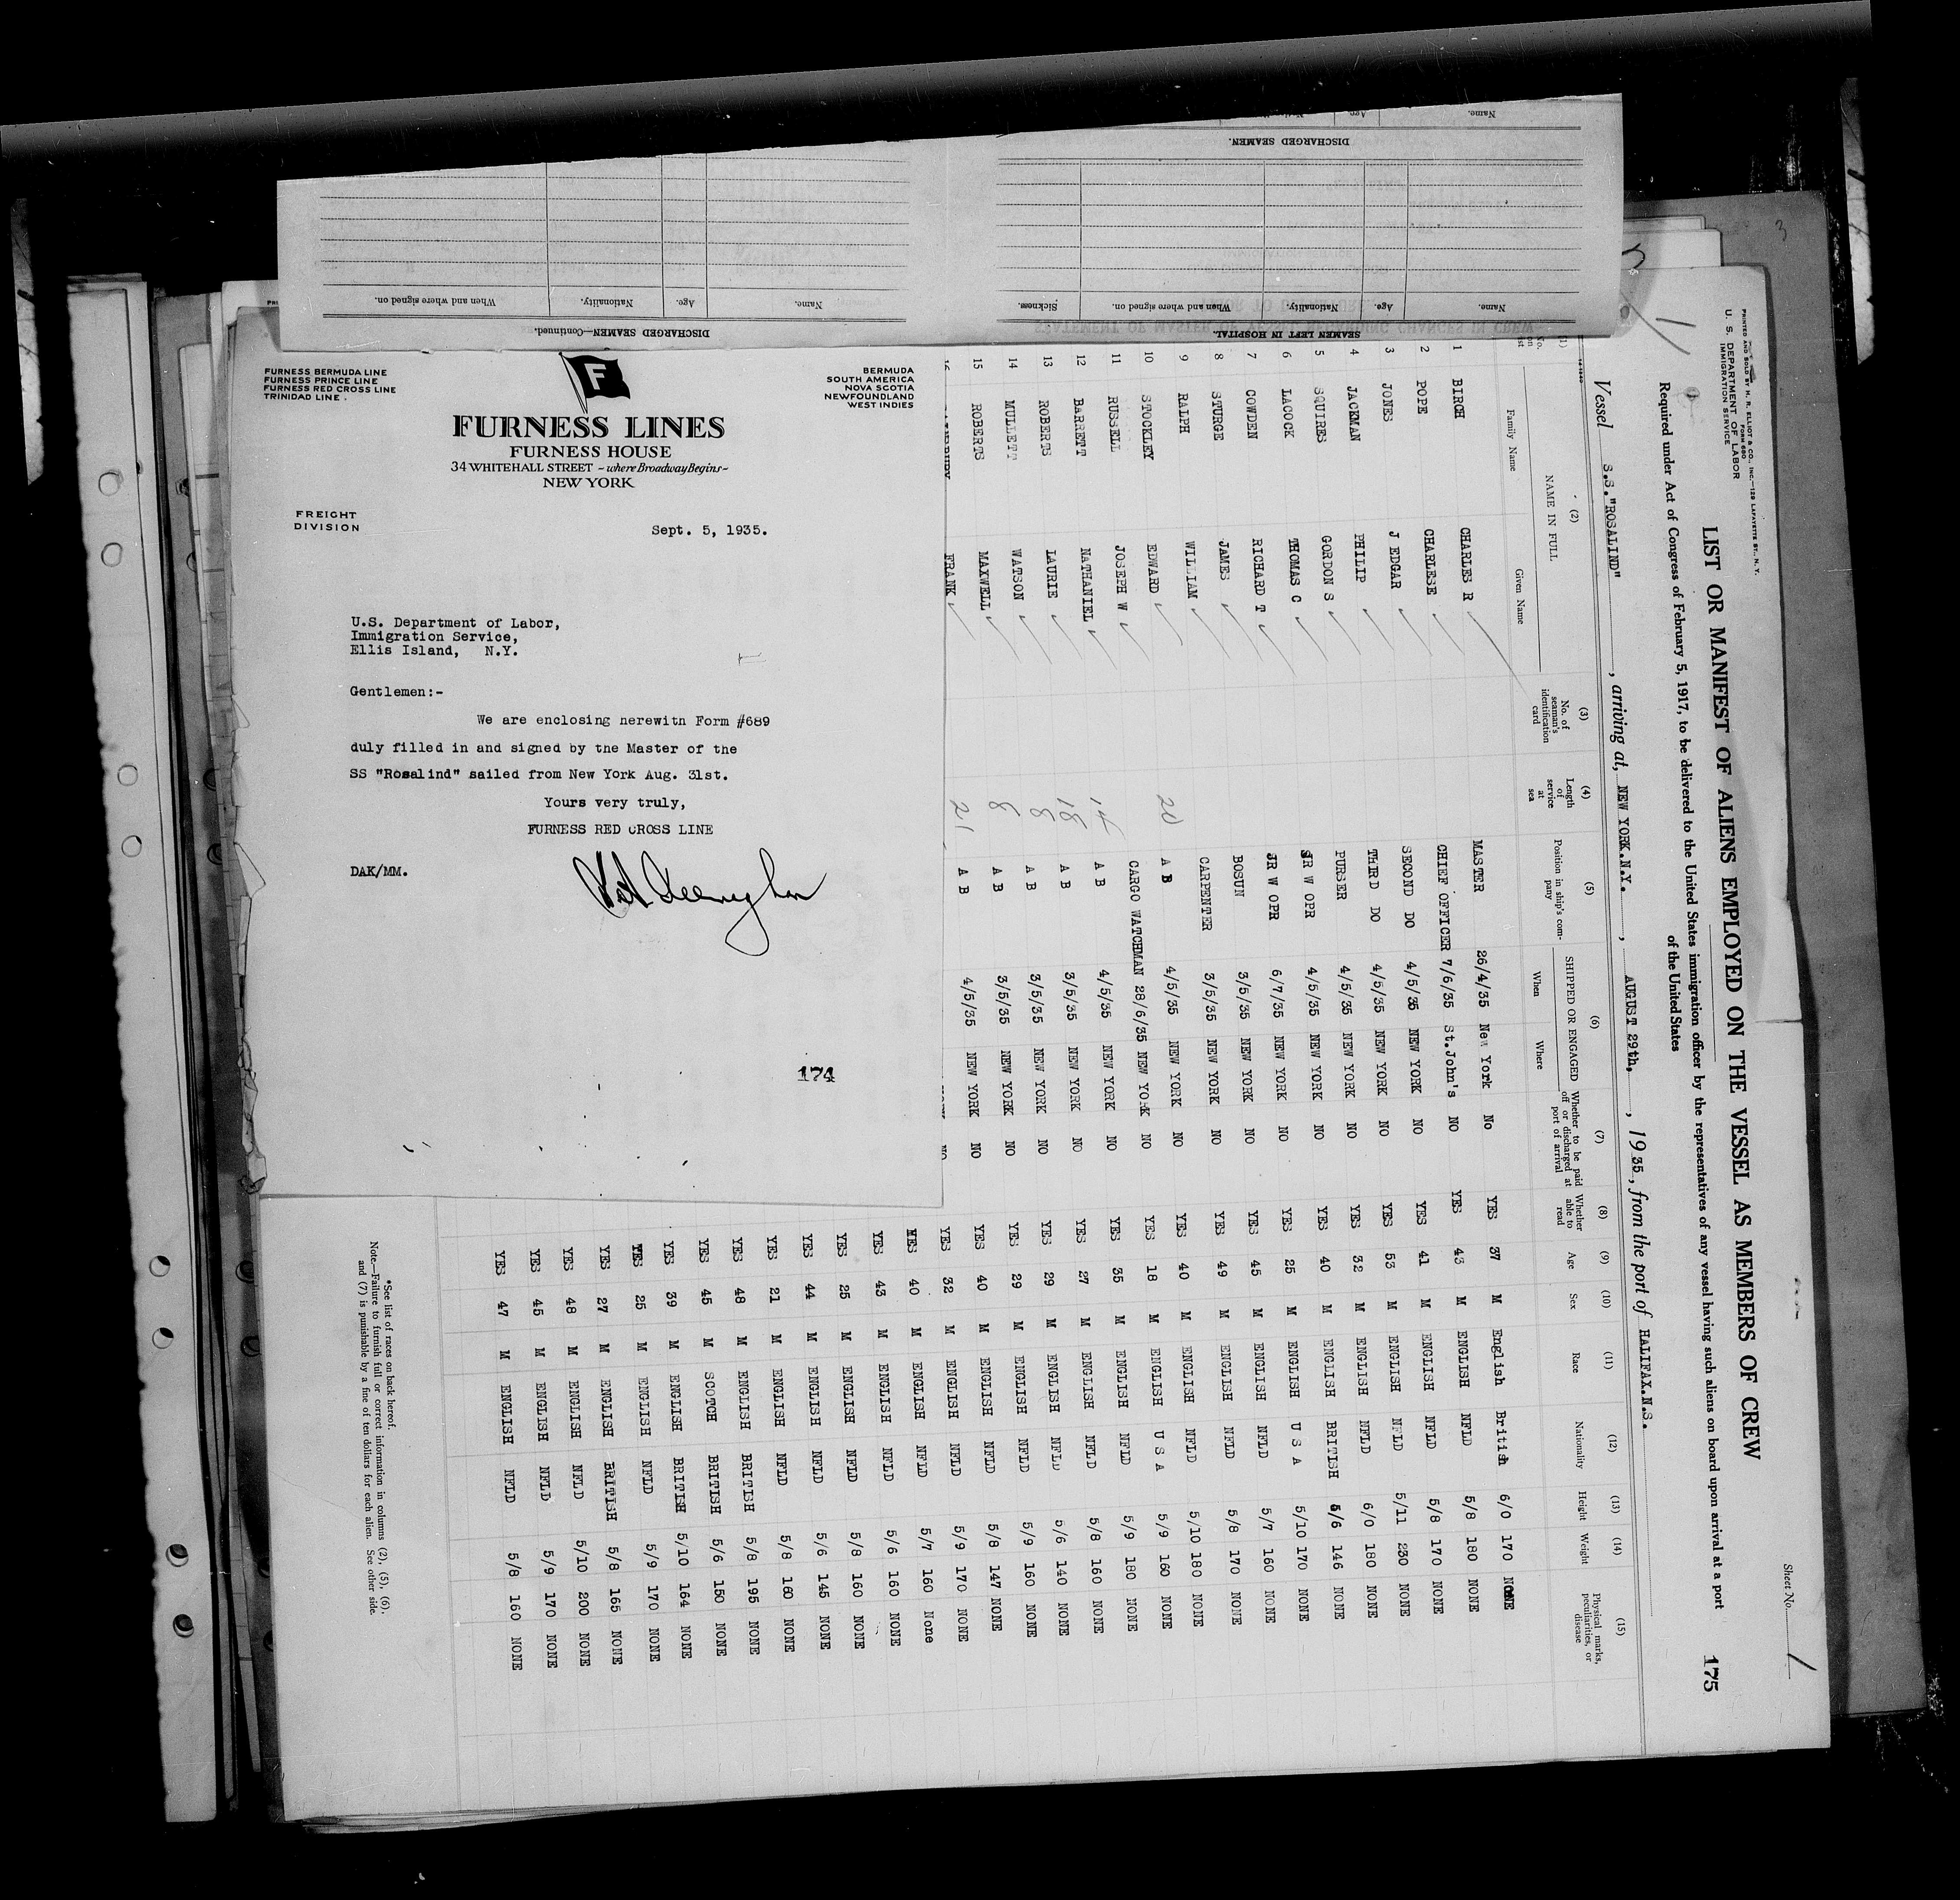 DISCHARGED SEAMEN.
Name. Age. Nationality. When and where signed on. Sickness.
SEAMEN LEFT IN HOSPITAL.
Name. Age. Nationality. When and where signed on.
DISCHARGED SEAMEN—Continued.
FURNESS BERMUDA LINE
FURNESS PRINCE LINE
FURNESS RED CROSS LINE
TRINIDAD LINE
BERMUDA
SOUTH AMERICA
NOVA SCOTIA
NEWFOUNDLAND
WEST INDIES
F
FURNESS LINES
FURNESS HOUSE
34 WHITEHALL STREET - where Broadway Begins -
NEW YORK
FREIGHT
DIVISION
Sept. 5, 1935.
U.S. Department of Labor,
Immigration Service,
Ellis Island, N.Y.
Gentlemen:-
We are enclosing herewith Form #689
duly filled in and signed by the Master of the
SS "Rosalind" sailed from New York Aug. 31st.
Yours very truly,
FURNESS RED CROSS LINE
DAK/MM.
174
3
PRINTED AND SOLD BY H. R. ELLIOT & CO., INC.—129 LAFAYETTE ST., N. Y.
FORM 680
U. S. DEPARTMENT OF LABOR
IMMIGRATION SERVICE
Sheet No. 1
LIST OR MANIFEST OF ALIENS EMPLOYED ON THE VESSEL AS MEMBERS OF CREW 175
Required under Act of Congress of February 5, 1917, to be delivered to the United States immigration officer by the representatives of any vessel having such aliens on board upon arrival at a port
of the United States
Vessel S.S."ROSALIND", arriving at, NEW YORK.N.Y., AUGUST 29th, 1935, from the port of HALIFAX.N.S.
(1) (2) (3) (4) (5) (6) (7) (8) (9) (10) (11) (12) (13) (14) (15)
NAME IN FULL No. of seaman's identification card Length of service at sea Position in ship's company SHIPPED OR ENGAGED Whether to be paid off or discharged at port of arrival Whether able to read Age Sex Race Nationality Height Weight Physical marks, peculiarities, or disease
Family Name Given Name When Where
1 BIRCH CHARLES R MASTER 26/4/35 New York No YES 37 M English British 6/0 170 NONE
2 POPE CHARLESE CHIEF OFFICER 7/6/35 St.John's NO YES 43 M ENGLISH NFLD 5/8 180 NONE
3 JONES J EDGAR SECOND DO 4/5/35 NEW YORK NO YES 41 M ENGLISH NFLD 5/8 170 NONE
4 JACKMAN PHILIP THIRD DO 4/5/35 NEW YORK NO YES 53 M ENGLISH NFLD 5/11 230 NONE
5 SQUIRES GORDON S PURSER 4/5/35 NEW YORK NO YES 32 M ENGLISH NFLD 6/0 180 NONE
6 LACOCK THOMAS C SR W OPR 4/5/35 NEW YORK NO YES 40 M ENGLISH BRITISH 5/6 146 NONE
7 COWDEN RICHARD T JR W OPR 6/7/35 NEW YORK NO YES 25 M ENGLISH U S A 5/10 170 NONE
8 STURGE JAMES BOSUN 3/5/35 NEW YORK NO YES 45 M ENGLISH NFLD 5/7 160 NONE
9 RALPH WILLIAM CARPENTER 3/5/35 NEW YORK NO YES 49 M ENGLISH NFLD 5/8 170 NONE
10 STOCKLEY EDWARD 20 A B 4/5/35 NEW YORK NO YES 40 M ENGLISH NFLD 5/10 180 NONE
11 RUSSELL JOSEPH W CARGO WATCHMAN 28/6/35 NEW YORK NO YES 18 M ENGLISH U S A 5/9 160 NONE
12 BARRETT NATHANIEL A B 4/5/35 NEW YORK NO YES 35 M ENGLISH NFLD 5/9 180 NONE
13 ROBERTS LAURIE 18 A B 3/5/35 NEW YORK NO YES 27 M ENGLISH NFLD 5/8 160 NONE
14 MULLETT WATSON 8 A B 3/5/35 NEW YORK NO YES 29 M ENGLISH NFLD 5/6 140 NONE
15 ROBERTS MAXWELL 8 A B 3/5/35 NEW YORK NO YES 29 M ENGLISH NFLD 5/9 160 NONE
FRANK 21 A B 4/5/35 NEW YORK NO YES 40 M ENGLISH NFLD 5/8 147 NONE
YES 32 M ENGLISH NFLD 5/9 170 NONE
YES 40 M ENGLISH NFLD 5/7 160 None
YES 43 M ENGLISH NFLD 5/6 160 NONE
YES 25 M ENGLISH NFLD 5/8 160 NONE
YES 44 M ENGLISH NFLD 5/6 145 NONE
YES 21 M ENGLISH NFLD 5/8 160 NONE
YES 48 M ENGLISH BRITISH 5/8 195 NONE
YES 45 M SCOTCH BRITISH 5/6 150 NONE
YES 39 M ENGLISH BRITISH 5/10 164 NONE
YES 25 M ENGLISH NFLD 5/9 170 NONE
YES 27 M ENGLISH BRITISH 5/8 165 NONE
YES 48 M ENGLISH NFLD 5/10 200 NONE
YES 45 M ENGLISH NFLD 5/9 170 NONE
YES 47 M ENGLISH NFLD 5/8 160 NONE
*See list of races on back hereof.
Note.—Failure to furnish full or correct information in columns (2), (5), (6),
and (7) is punishable by a fine of ten dollars for each alien. See other side.